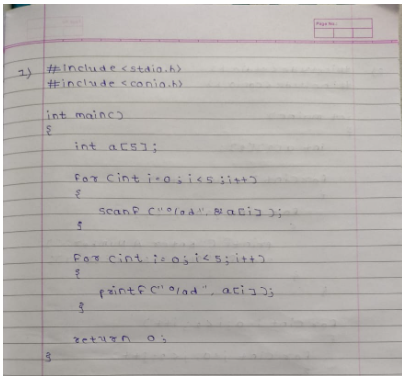 Page No.:
2) #include <stdio.h>
#include <conio.h>
int main()
{
int a[5];
for (int i=0; i<5; i++)
{
scanf ("%d", &a[i]);
}
for (int i=0; i<5; i++)
{
printf ("%d", a[i]);
}
return 0;
}